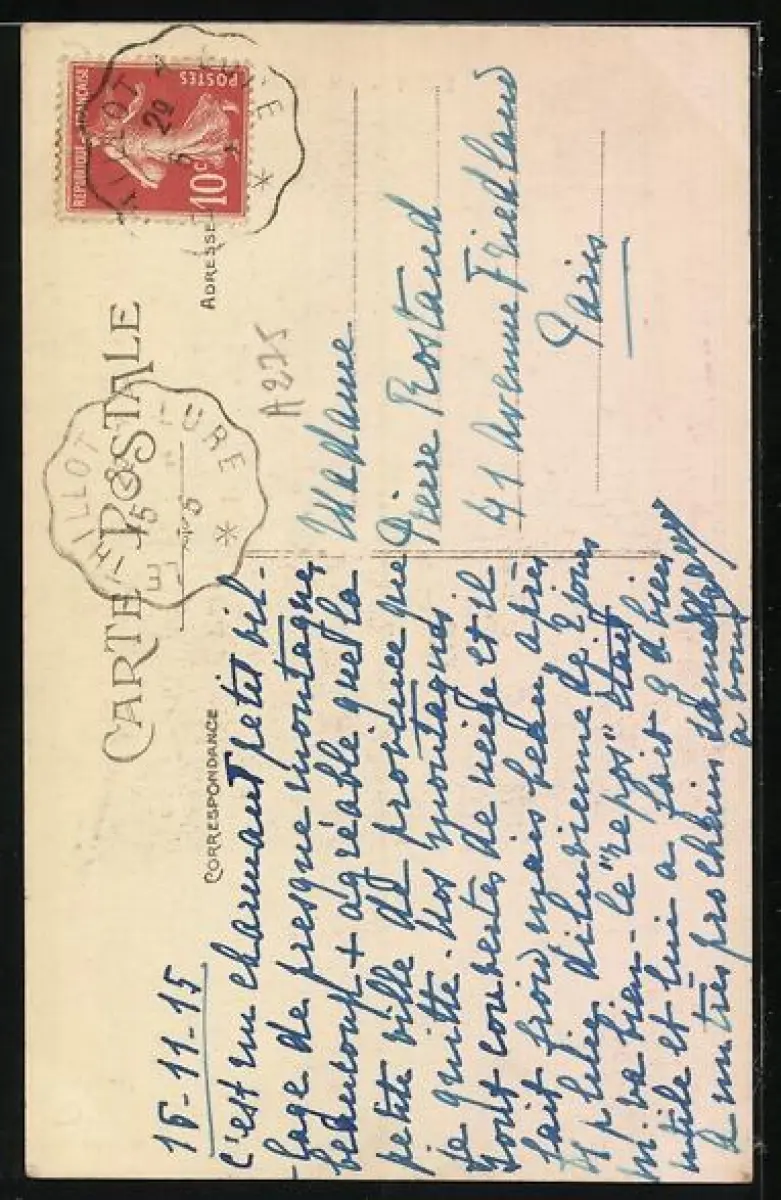 CARTE POSTALE
CORRESPONDANCE
ADRESSE
RÉPUBLIQUE FRANÇAISE
POSTES
10c
A 275
15-11-15
C'est un charmant petit vil-
lage de presque montagne,
beaucoup + agréable que la
petite ville de province que
je quitte. Nos montagnes
sont couvertes de neige et il
fait froid mais beau après
les pluies diluviennes de 2 jours
M. va bien - le "repos" était
utile et lui a fait gd bien
à un très prochain
à vous
Madame
Pierre Rostand
41 Avenue Friedland
Paris